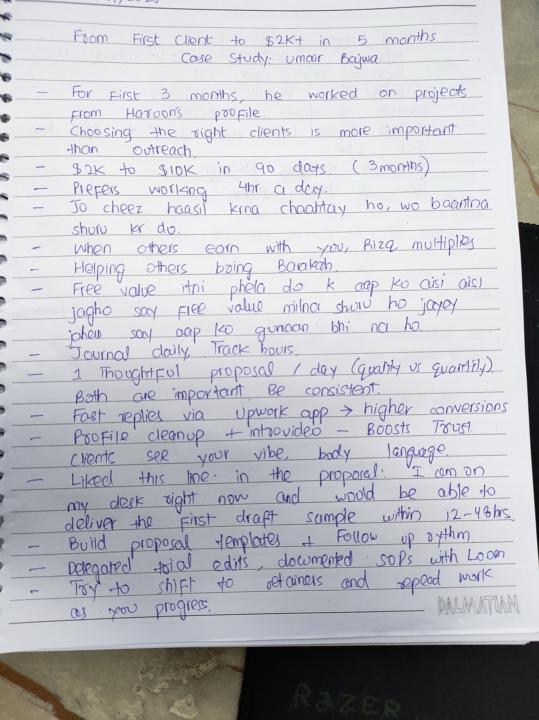 From First Client to $2K+ in 5 months
Case Study: Umair Bajwa
- For First 3 months, he worked on projects
from Haroon's profile
- Choosing the right clients is more important
than outreach.
- $2K to $10K in 90 days. (3 months)
- Prefers working 4hr a day.
- Jo cheez haasil krna chaahtay ho, wo baantna
shuru kr do.
- When others earn with you, Rizq multiplies
- Helping others bring Barakah.
- Free value itni phela do k aap ko aisi aisi
jagho say Free value milna shuru ho jayey
jahan say aap ko gumaan bhi na ho.
- Journal daily, Track hours.
- 1 Thoughtful proposal / day (quality vs quantity)
Both are important. Be consistent.
- Fast replies via Upwork app → higher conversions
- Profile cleanup + introvideo - Boosts Trust.
Clients see your vibe, body language.
- Liked this line in the proposal: I am on
my desk right now and would be able to
deliver the first draft sample within 12-48hrs.
- Build proposal templates + Follow up rythm
- Delegated trial edits, documented SOPs with Loom
- Try to shift to retainers and repead work
as you progress.
DALMATIAN
RAZER